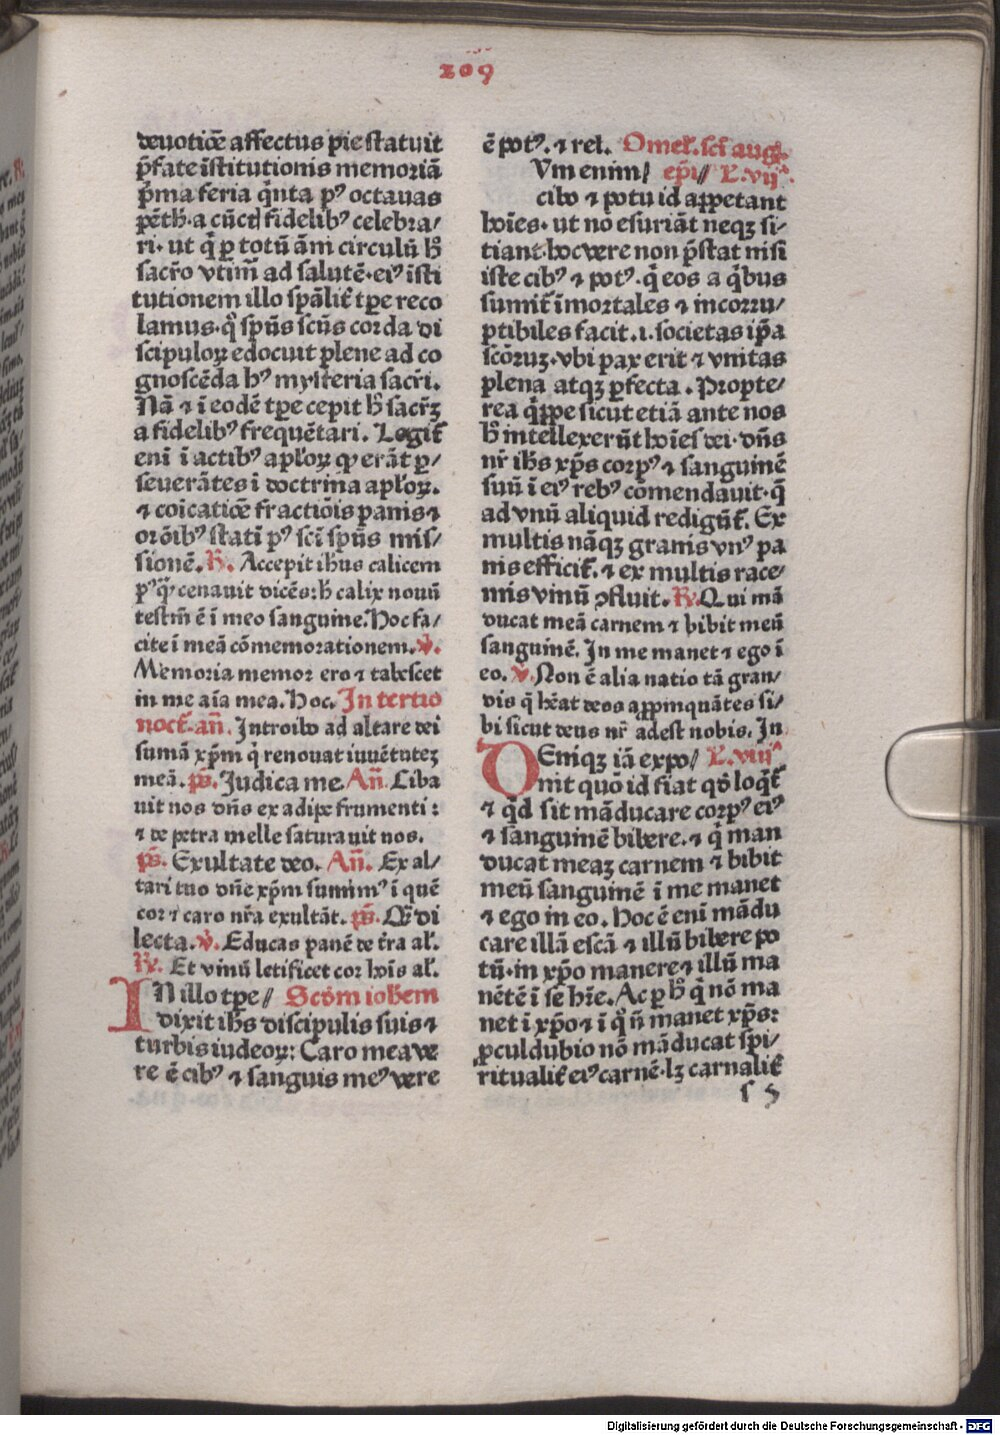 209
deuotiōe affectus pie statuit
p̄fate īstitutionis memoriā
p̄ma feria q̄nta pꝰ octauas
pēth̄. a cūct fidelibꝰ celebra/
ri. ut q̄ ꝑ totū āni circulū h̄
sacr̄o vtim̄ ad salutē. eiꝰ īsti
tutionem illo sp̄alit̄ tp̄e reco
lamus. q̊ sp̄ūs sc̄ūs corda di
scipuloꝝ edocuit plene ad co
gnoscēda hꝰ mysteria sacr̄i.
Nā ⁊ ī eodē tp̄e cepit h̄ sacr̄ꝫ
a fidelibꝰ frequētari. Legit̄
enī ī actibꝰ apl̄oꝝ ꝙ erāt ꝑ/
seuerātes ī doctrina apl̄oꝝ.
⁊ cōicatiōe fractiōis panis ⁊
orōibꝰ statī pꝰ sc̄i sp̄ūs mis/
sionē. R̄. Accepit ih̄us calicem
pꝰq̄ cenauit dicēs: h̄ calix nouū
testm̄ ē ī meo sanguine. Hoc fa/
cite ī meā cōmemorationem. v̄.
Memoria memor ero ⁊ tabescet
in me aīa mea. Hoc. In tertio
noct̄. an̄. Introibo ad altare dei
sumā xp̄m q̄ renouat iuuētuteꝫ
meā. ps̄. Judica me. An̄. Liba
uit nos dn̄s ex adipe frumenti:
⁊ de petra melle saturauit nos.
ps̄. Exultate deo. An̄. Ex al/
tari tuo dn̄e xp̄m sumimꝰ ī quē
cor ⁊ caro nr̄a exultāt. ps̄. Q̄ di
lecta. v̄. Educas panē de t̄ra al̄.
R̄. Et vinū letificet cor hoīs al̄.
IN illo tp̄e// Scd̄m ioh̄em
dixit ih̄s discipulis suis ⁊
turbis iudeoꝝ: Caro mea ve
re ē cibꝰ ⁊ sanguis meꝰ vere
ē potꝰ. ⁊ rel. Omel̄. sct̄ aug.
Vm enim/ ep̄i// L. vij
cibo ⁊ potu id appetant
hoīes. ut no esuriāt neqꝫ si/
tiant. hoc vere non p̄stat nisi
iste cibꝰ ⁊ potꝰ. q̄ eos a q̄bus
sumit̄ īmortales ⁊ incorru/
ptibiles facit. .i. societas ip̄a
sc̄oruꝫ. vbi pax erit ⁊ vnitas
plena atqꝫ ꝑfecta. Propte/
rea q̄ppe sicut etiā ante nos
h̄ intellexerūt hoīes dei. dn̄s
nr̄ ih̄s xp̄s corpꝰ ⁊ sanguinē
suū ī eiꝰ rebꝰ cōmendauit. q̄
ad vnū aliquid redigūt̄. Ex
multis nāqꝫ granis vnꝰ pa
nis efficit̄. ⁊ ex multis race/
mis vinū ꝯfluit. R̄. Qui mā
ducat meā carnem ⁊ bibit meū
sanguinē. In me manet ⁊ ego ī
eo. v̄. Non ē alia natio tā gran/
dis q̄ h̄eat deos appinquātes si/
bi sicut deus nr̄ adest nobis. In
DEniqꝫ iā expo/ L. viij
nit quō id fiat qd̄ loq̄t̄
⁊ q̄d sit māducare corpꝰ eiꝰ
⁊ sanguinē bibere. ⁊ q̄ man
ducat meaꝫ carnem ⁊ bibit
meū sanguinē ī me manet
⁊ ego in eo. Hoc ē enī mādu
care illā escā ⁊ illū bibere po
tū. in xp̄o manere ⁊ illū ma
nētē ī se h̄re. Ac ꝑ h̄ q̄ nō ma
net ī xp̄o ⁊ ī q̊ n̄ manet xp̄s:
ꝓculdubio nō māducat spi/
ritualit̄ eiꝰ carnē. lꝫ carnalit̄
s 5
Digitalisierung gefördert durch die Deutsche Forschungsgemeinschaft - DFG